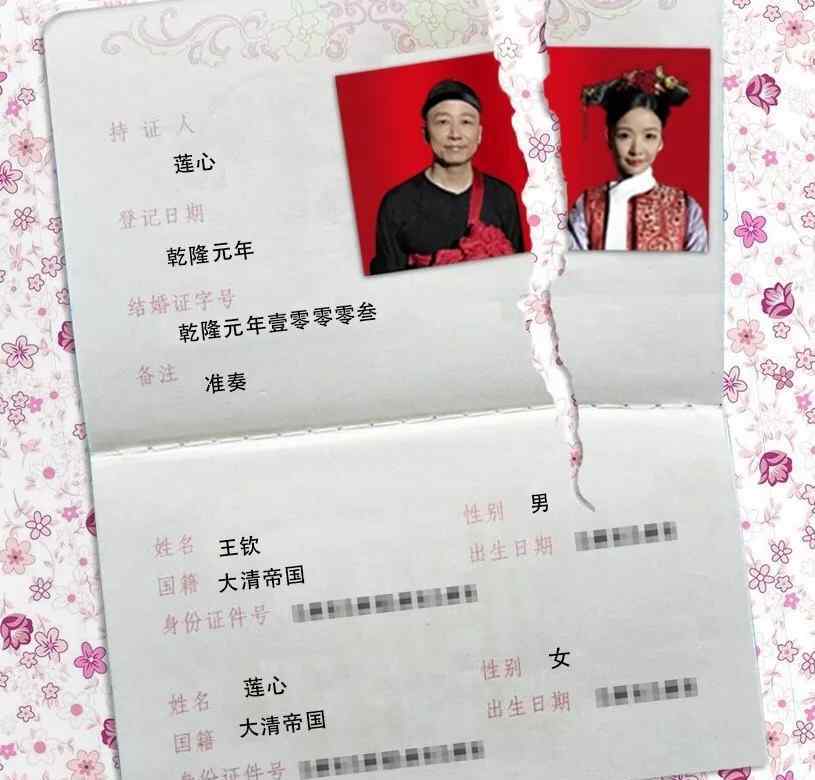 持证人
莲心
登记日期
乾隆元年
结婚证字号
乾隆元年壹零零零叁
备注
准奏
姓名 王钦 性别 男
国籍 大清帝国 出生日期
身份证件号
姓名 莲心 性别 女
国籍 大清帝国 出生日期
身份证件号